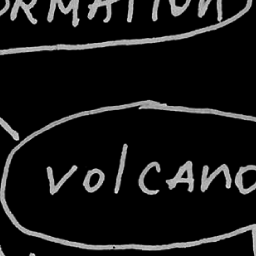 ORMATION
volcano